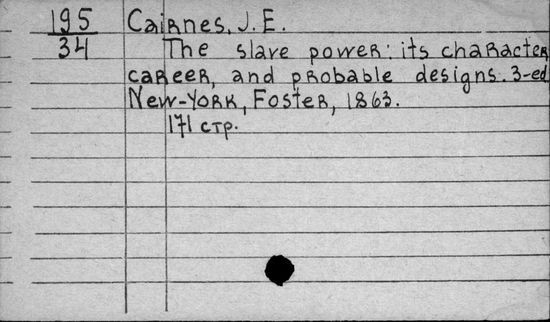 195 Cairnes, J. E.
34 The slave power: its character,
career, and probable designs. 3-ed
New-York, Foster, 1863.
171 стр.